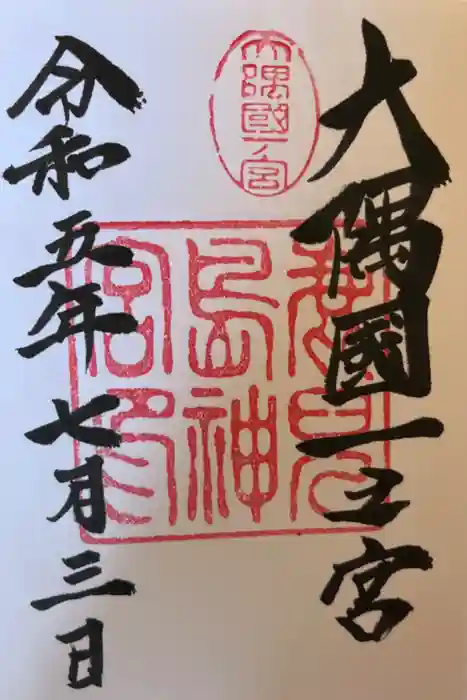 大隅國一之宮
大隅國一ノ宮
鹿兒
島神
宮印
令和五年七月三日